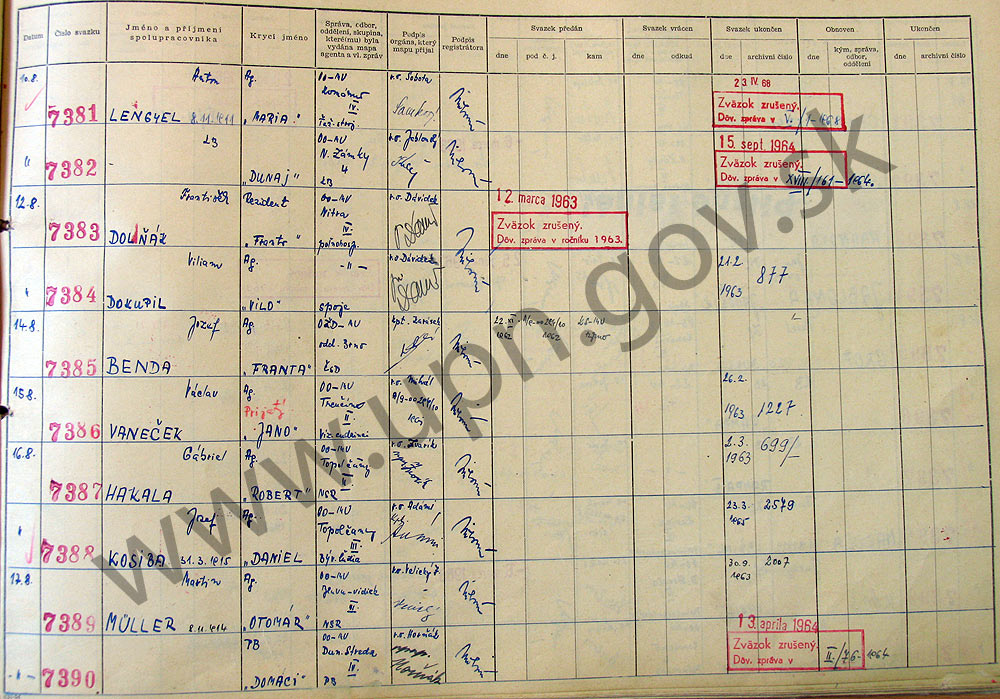 Datum
Číslo svazku
Jméno a příjmení spolupracovníka
Krycí jméno
Správa, odbor, oddělení, skupina, které(mu) byla vydána mapa agenta a vl. zpráv
Podpis orgána, který mapu přijal
Podpis registrátora
Svazek předán
Svazek vrácen
Svazek ukončen
Obnoven
Ukončen
dne
pod č. j.
kam
dne
odkud
dne
archivní číslo
dne
kým, správa, odbor, oddělení
dne
archivní číslo
10.8.
7381
Anton
LENGYEL 8.11.1911
Ag.
„MARIA."
OO-MV
Komárno
IV.
r.s. Sobota
23 IV. 68
Zväzok zrušený.
Dôv. zpráva v
"
7382
ZB
„DUNAJ"
OO-MV
N. Zámky
4
ZB
r.s. Jablonský
15. sept. 1964
Zväzok zrušený.
Dôv. zpráva v XVIII./161-1964.
12.8.
7383
František
Rezident
OO-MV
Nitra
IV.
poľnohosp.
r.s. Dávidek
12. marca 1963
Zväzok zrušený.
Dôv. zpráva v ročníku 1963.
7384
Viliam
DOKUPIL
Ag.
„VILO"
- " -
spoje
r.s. Dávidek
21.2.
1963
877
14.8.
7385
Jozef
BENDA
Ag.
„FRANTA"
OŽD-MV
odd. Brno
ČSD
22. XI.
1962
1962
15.8.
7386
Václav
VANEČEK
Ag.
Prijatý
„JANO"
OO-MV
Trenčín
II.
26.2.
1963
1227
16.8.
7387
Gábriel
HAKALA
Ag.
„ROBERT"
OO-MV
Topoľčany
NSR
2.3.
1963
699/-
7388
Jozef
KOSIBA 31.3.1915
Ag.
„DANIEL"
OO-MV
Topoľčany
III.
r.s. Adámi
23.3.
1965
2579
17.8.
7389
Martin
MÜLLER 8.11.1914
Ag.
„OTOMÁR"
OO-MV
NSR
r.s. Velický
30.9.
1963
2007
- " -
7390
PB
„DOMACI"
OO-MV
Dun. Streda
IV.
PB
r.s. Horňák
13. apríla 1964
Zväzok zrušený.
Dôv. zpráva v II./76-1964
www.upn.gov.sk